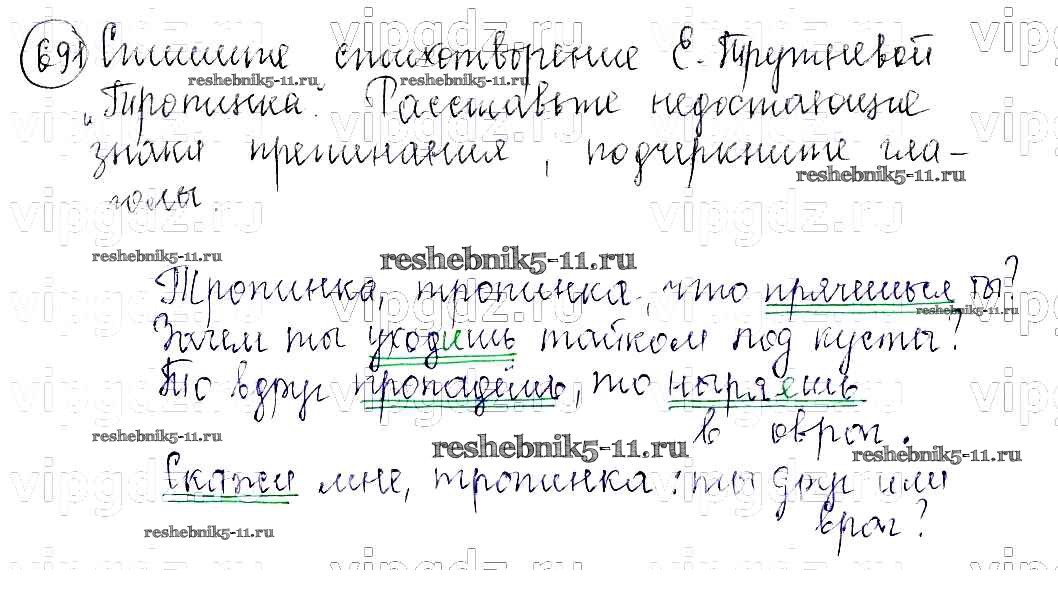 691 Спишите стихотворение Е. Трутневой
"Тропинка". Расставьте недостающие
знаки препинания, подчеркните гла-
голы.
Тропинка, тропинка, что прячешься ты?
Зачем ты уходишь тайком под кусты?
То вдруг пропадёшь, то ныряешь
в овраг.
Скажи мне, тропинка: ты друг или
враг?
vipgdz.ru
reshebnik5-11.ru